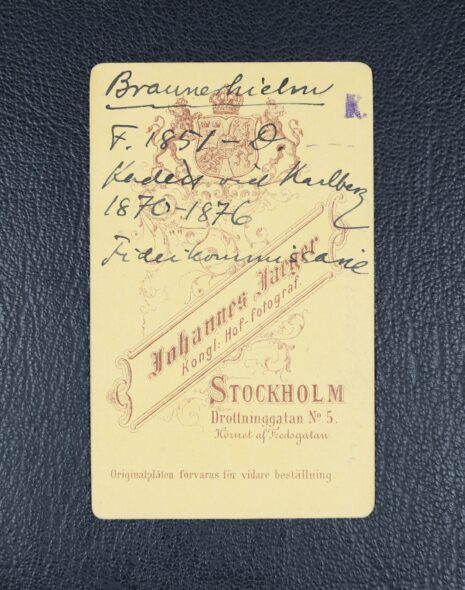 Braunerhielm
K.
F. 1851 – D.
Kadett vid Karlberg
1870–1876
Fideikommissarie
Johannes Jaeger
Kongl: Hof-fotograf.
STOCKHOLM
Drottninggatan No 5.
Hörnet af Fredsgatan
Originalplåten förvaras för vidare beställning.